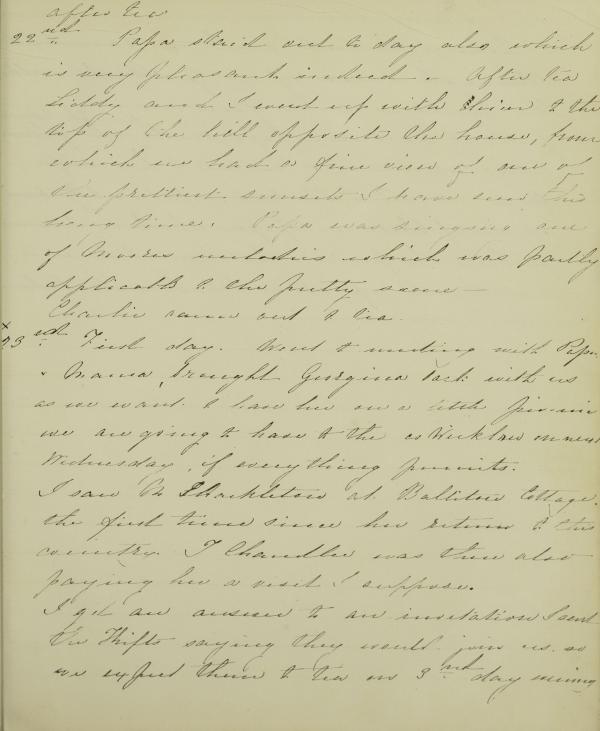 after tea
22nd. Papa staid out to day also which
is very pleasant indeed. After tea
Liddy and I went up with him to the
top of the hill opposite the house, from
which we had a fine view of one of
the prettiest sunsets I have seen this
long time. Papa was singing one
of Moores melodies which was partly
applicable to the pretty scene —
Charlie came out to tea.
x
23rd. First day. Went to meeting with Papa
& Mama, brought Georgina with us
as we want to have her on a little pic-nic
we are going to have to the co Wicklow on next
Wednesday, if everything permits.
I saw Shackleton at Ballitore Cottage.
the first time since her return to this
country. T Chandlee was there also
paying her a visit I suppose.
I got an answer to an invitation I sent
the Thifts saying they would join us. so
we expect them to tea on 3rd day evening